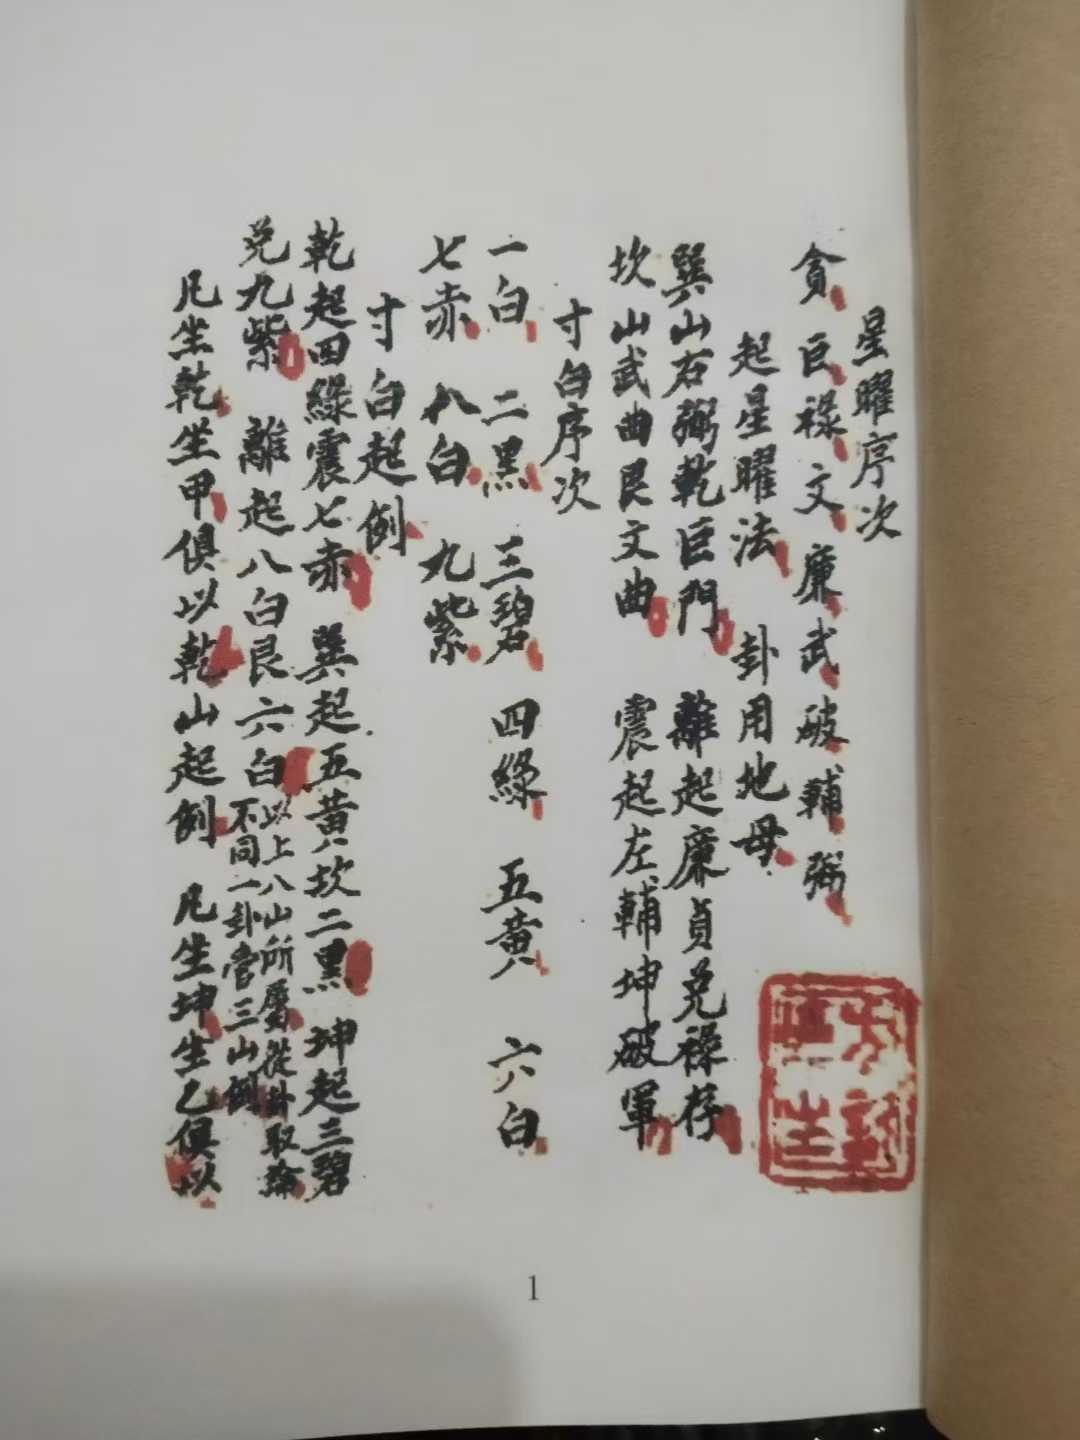 星曜序次
貪巨祿文廉武破輔弼
起星曜法 卦用地母
巽山右弼乾巨門 離起廉貞兌祿存
坎山武曲艮文曲 震起左輔坤破軍
寸白序次
一白 二黑 三碧 四綠 五黃 六白
七赤 八白 九紫
寸白起例
乾起四綠震七赤 巽起五黃坎二黑 坤起三碧
兌九紫 離起八白艮六白
以上八山所屬從卦取論
不同一卦管三山例
凡坐乾坐甲俱以乾山起例 凡坐坤坐乙俱以
1